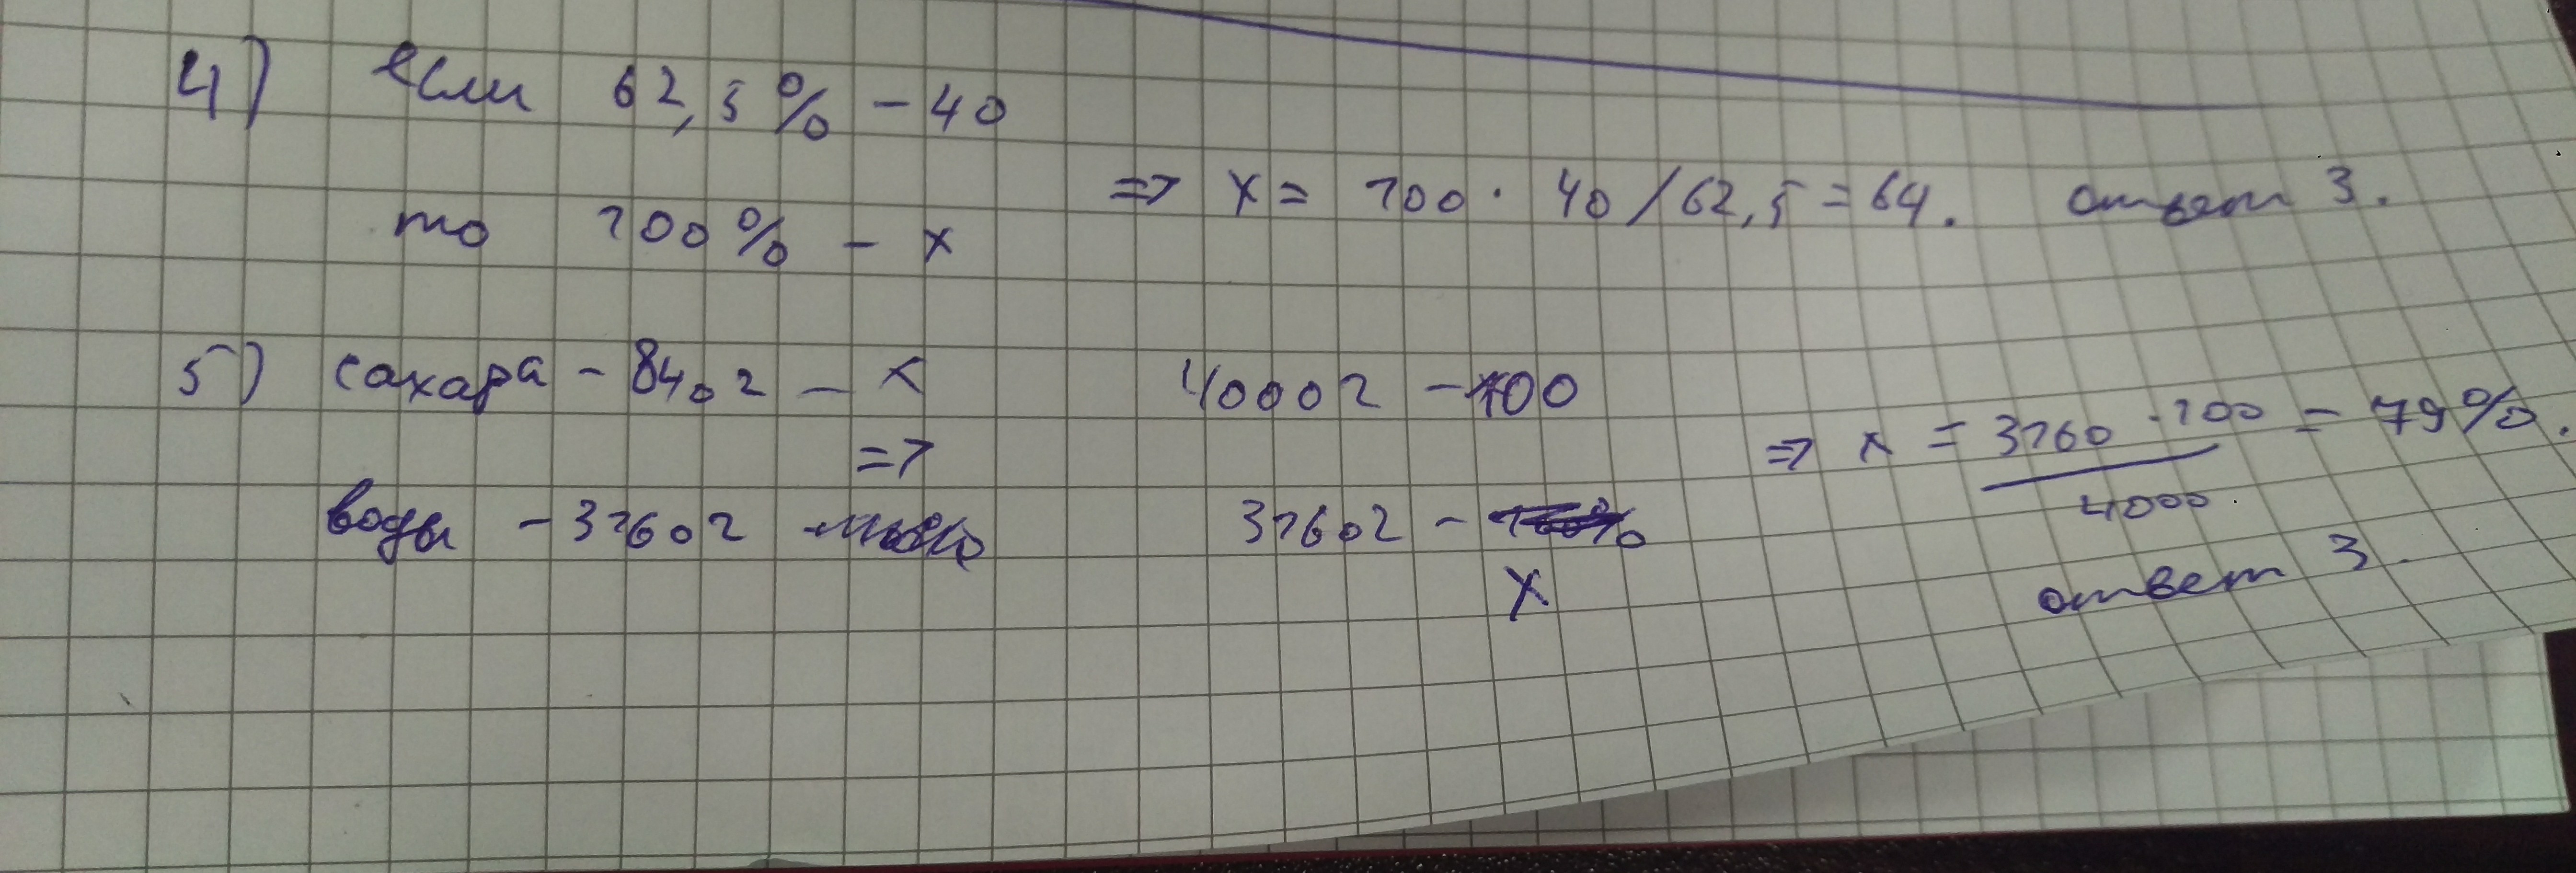 4) если 62,5% - 40
то 100% - x
=> x = 100 · 40 / 62,5 = 64. ответ 3.
5) сахара - 840г - x
=>
воды - 3160г
4000г - 100
3160г -
x
=> x = 3160 · 100 / 4000 = 79%.
ответ 3.